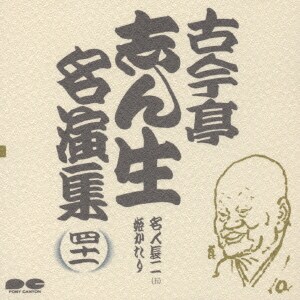 古今亭
志ん生
名演集
四十一
名人長二(五)
姫かたり
PONY CANYON